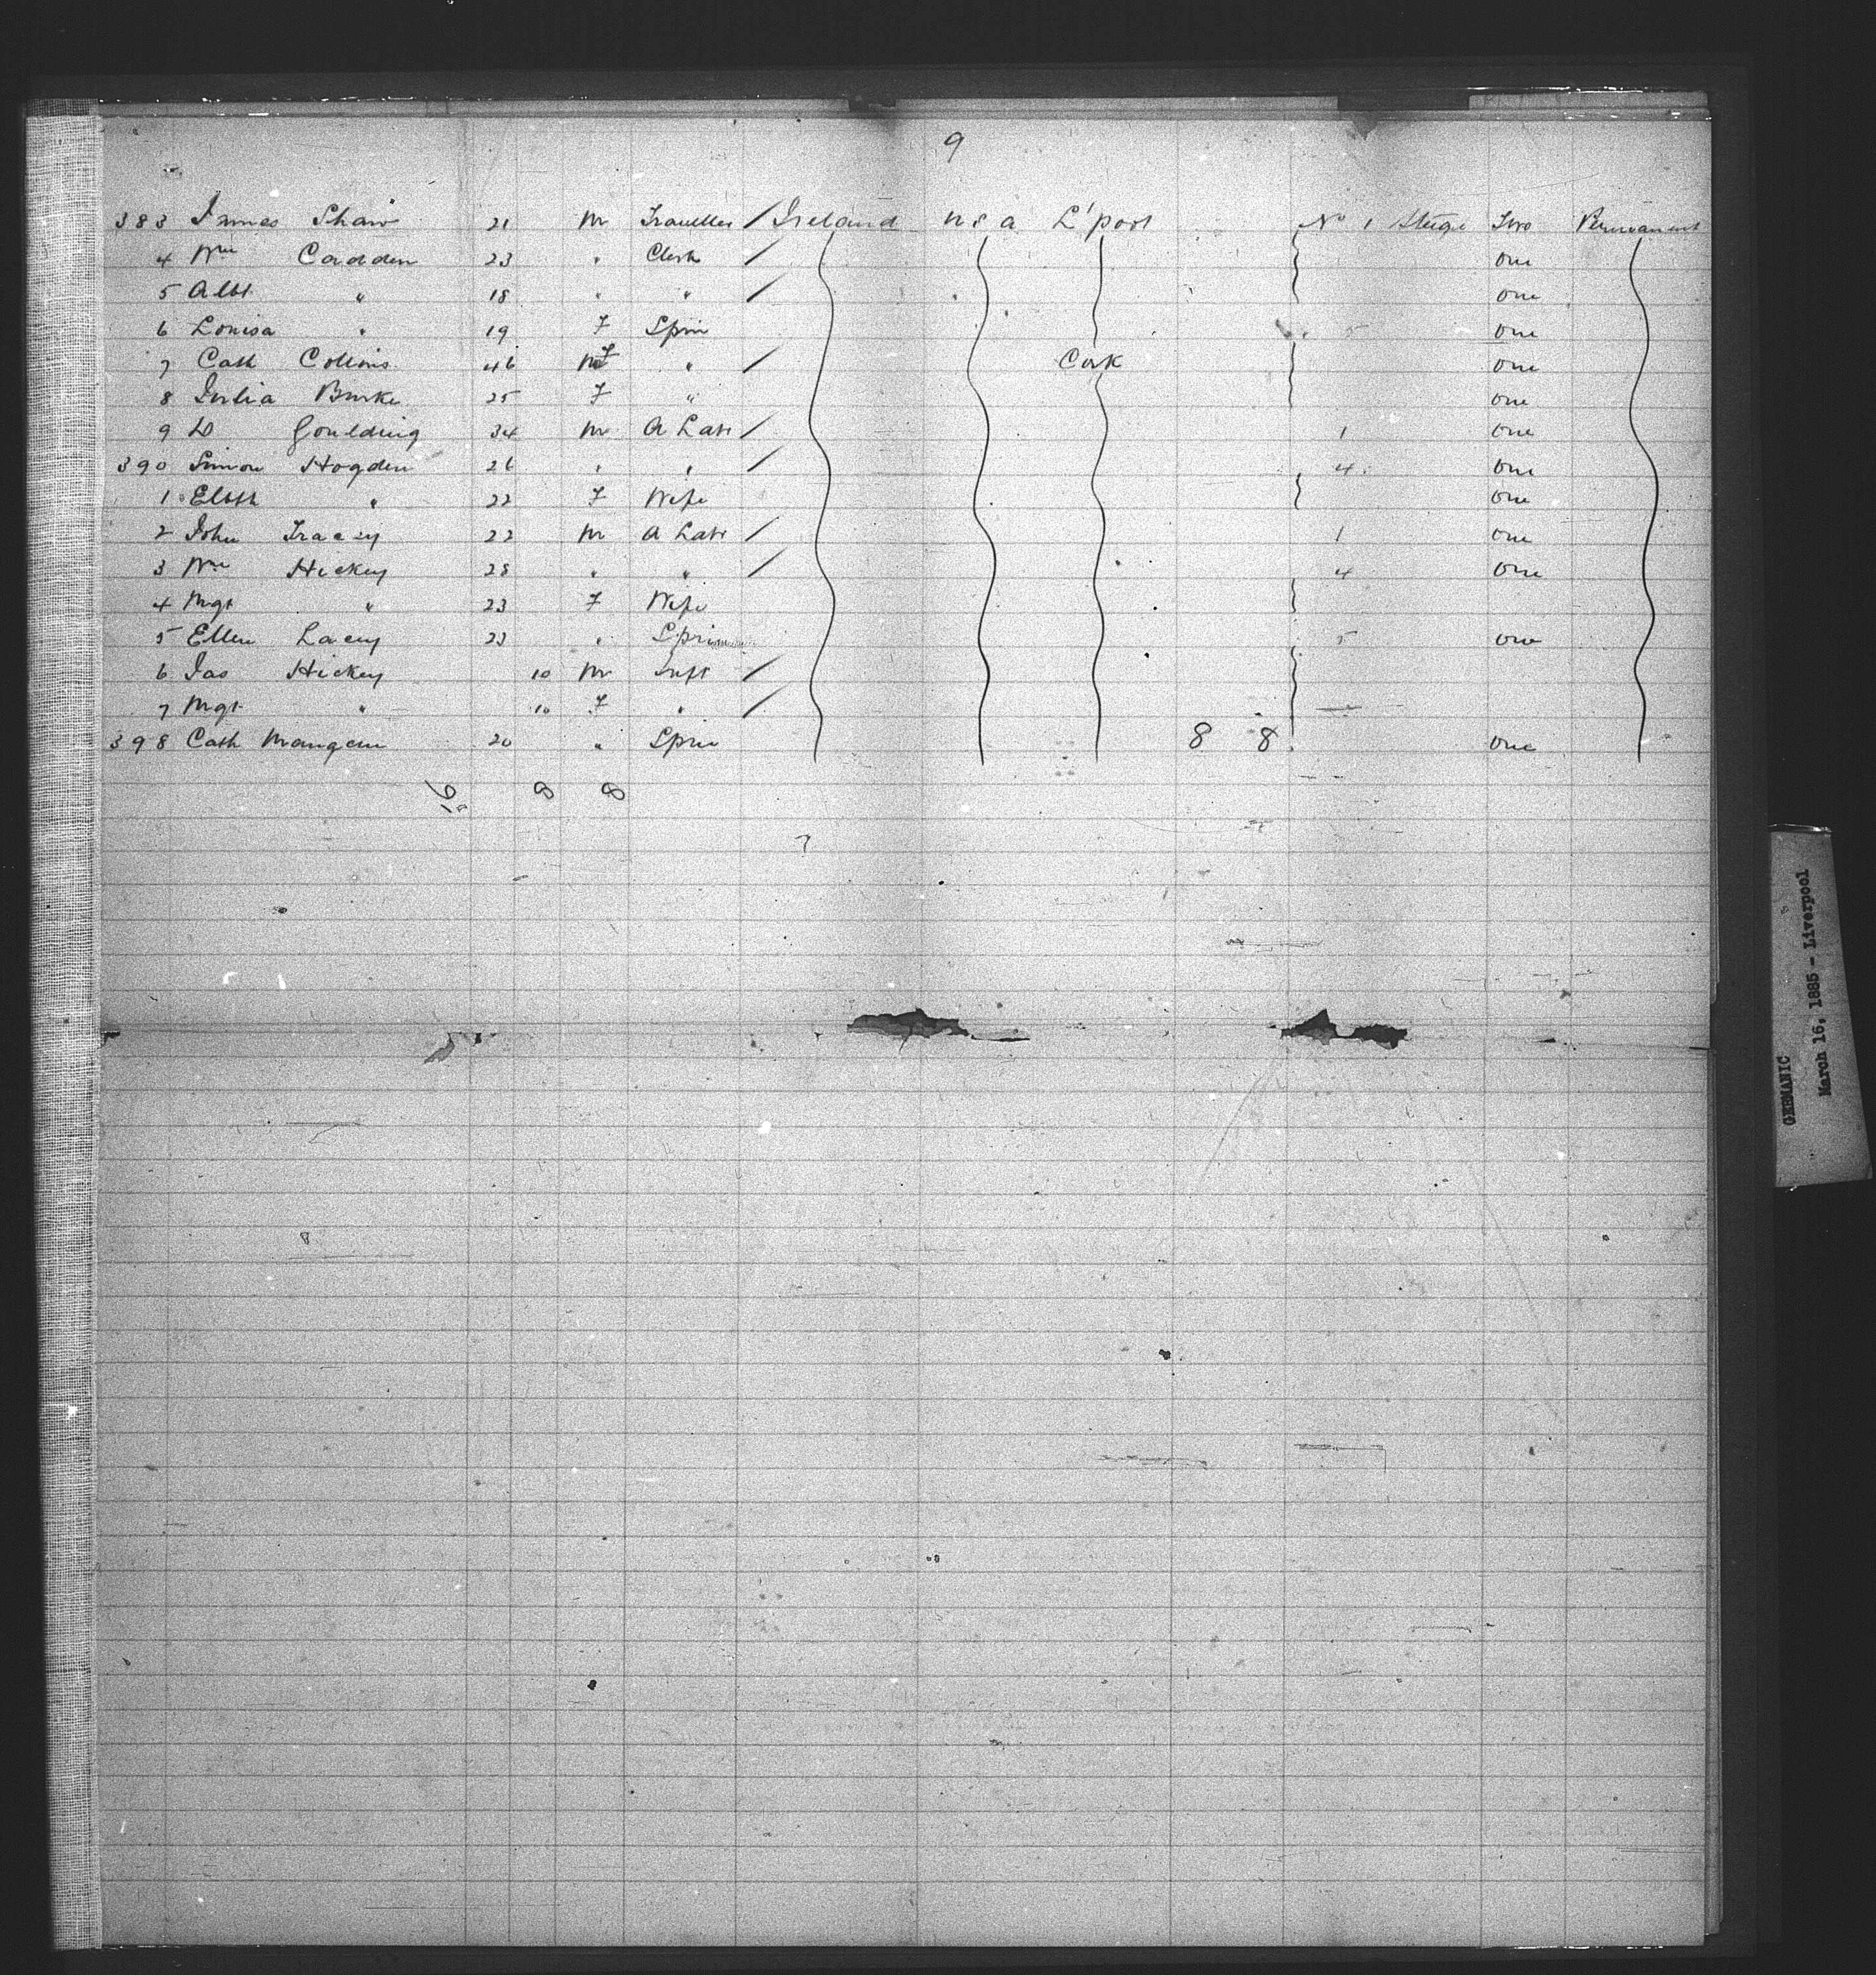 9
383 James Shaw 21 M Traveller / Ireland U S A L'pool No 1 Steige Two Permanent
4 Wm Cadden 23 " Clerk / one
5 Albt " 18 " " / one
6 Louisa " 19 F Spin 5 one
7 Cath Collins 46 F " / Cork one
8 Julia Burke 25 F " one
9 D Goulding 34 M A Labr / 1 one
390 Simon Hogden 26 " " / 4 one
1 Elbth " 22 F Wife one
2 John Tracey 22 M A Labr / 1 one
3 Wm Hickey 28 " " / 4 one
4 Mgt " 23 F Wife
5 Ellen Lacey 23 " Spin 5 one
6 Jas Hickey 10 M Inft /
7 Mgt " 10 F " /
398 Cath Mangan 20 " Spin 8 8 one
16 8 8
GERMANIC
March 16, 1885 - Liverpool